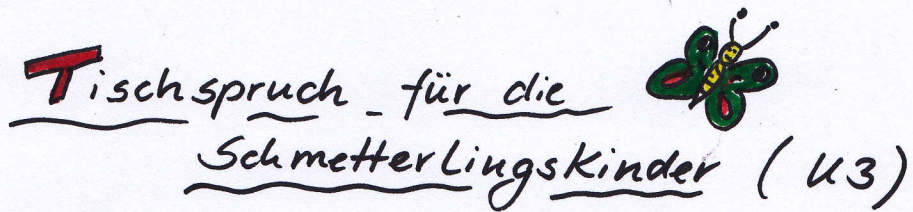 Tischspruch für die
Schmetterlingskinder (U3)